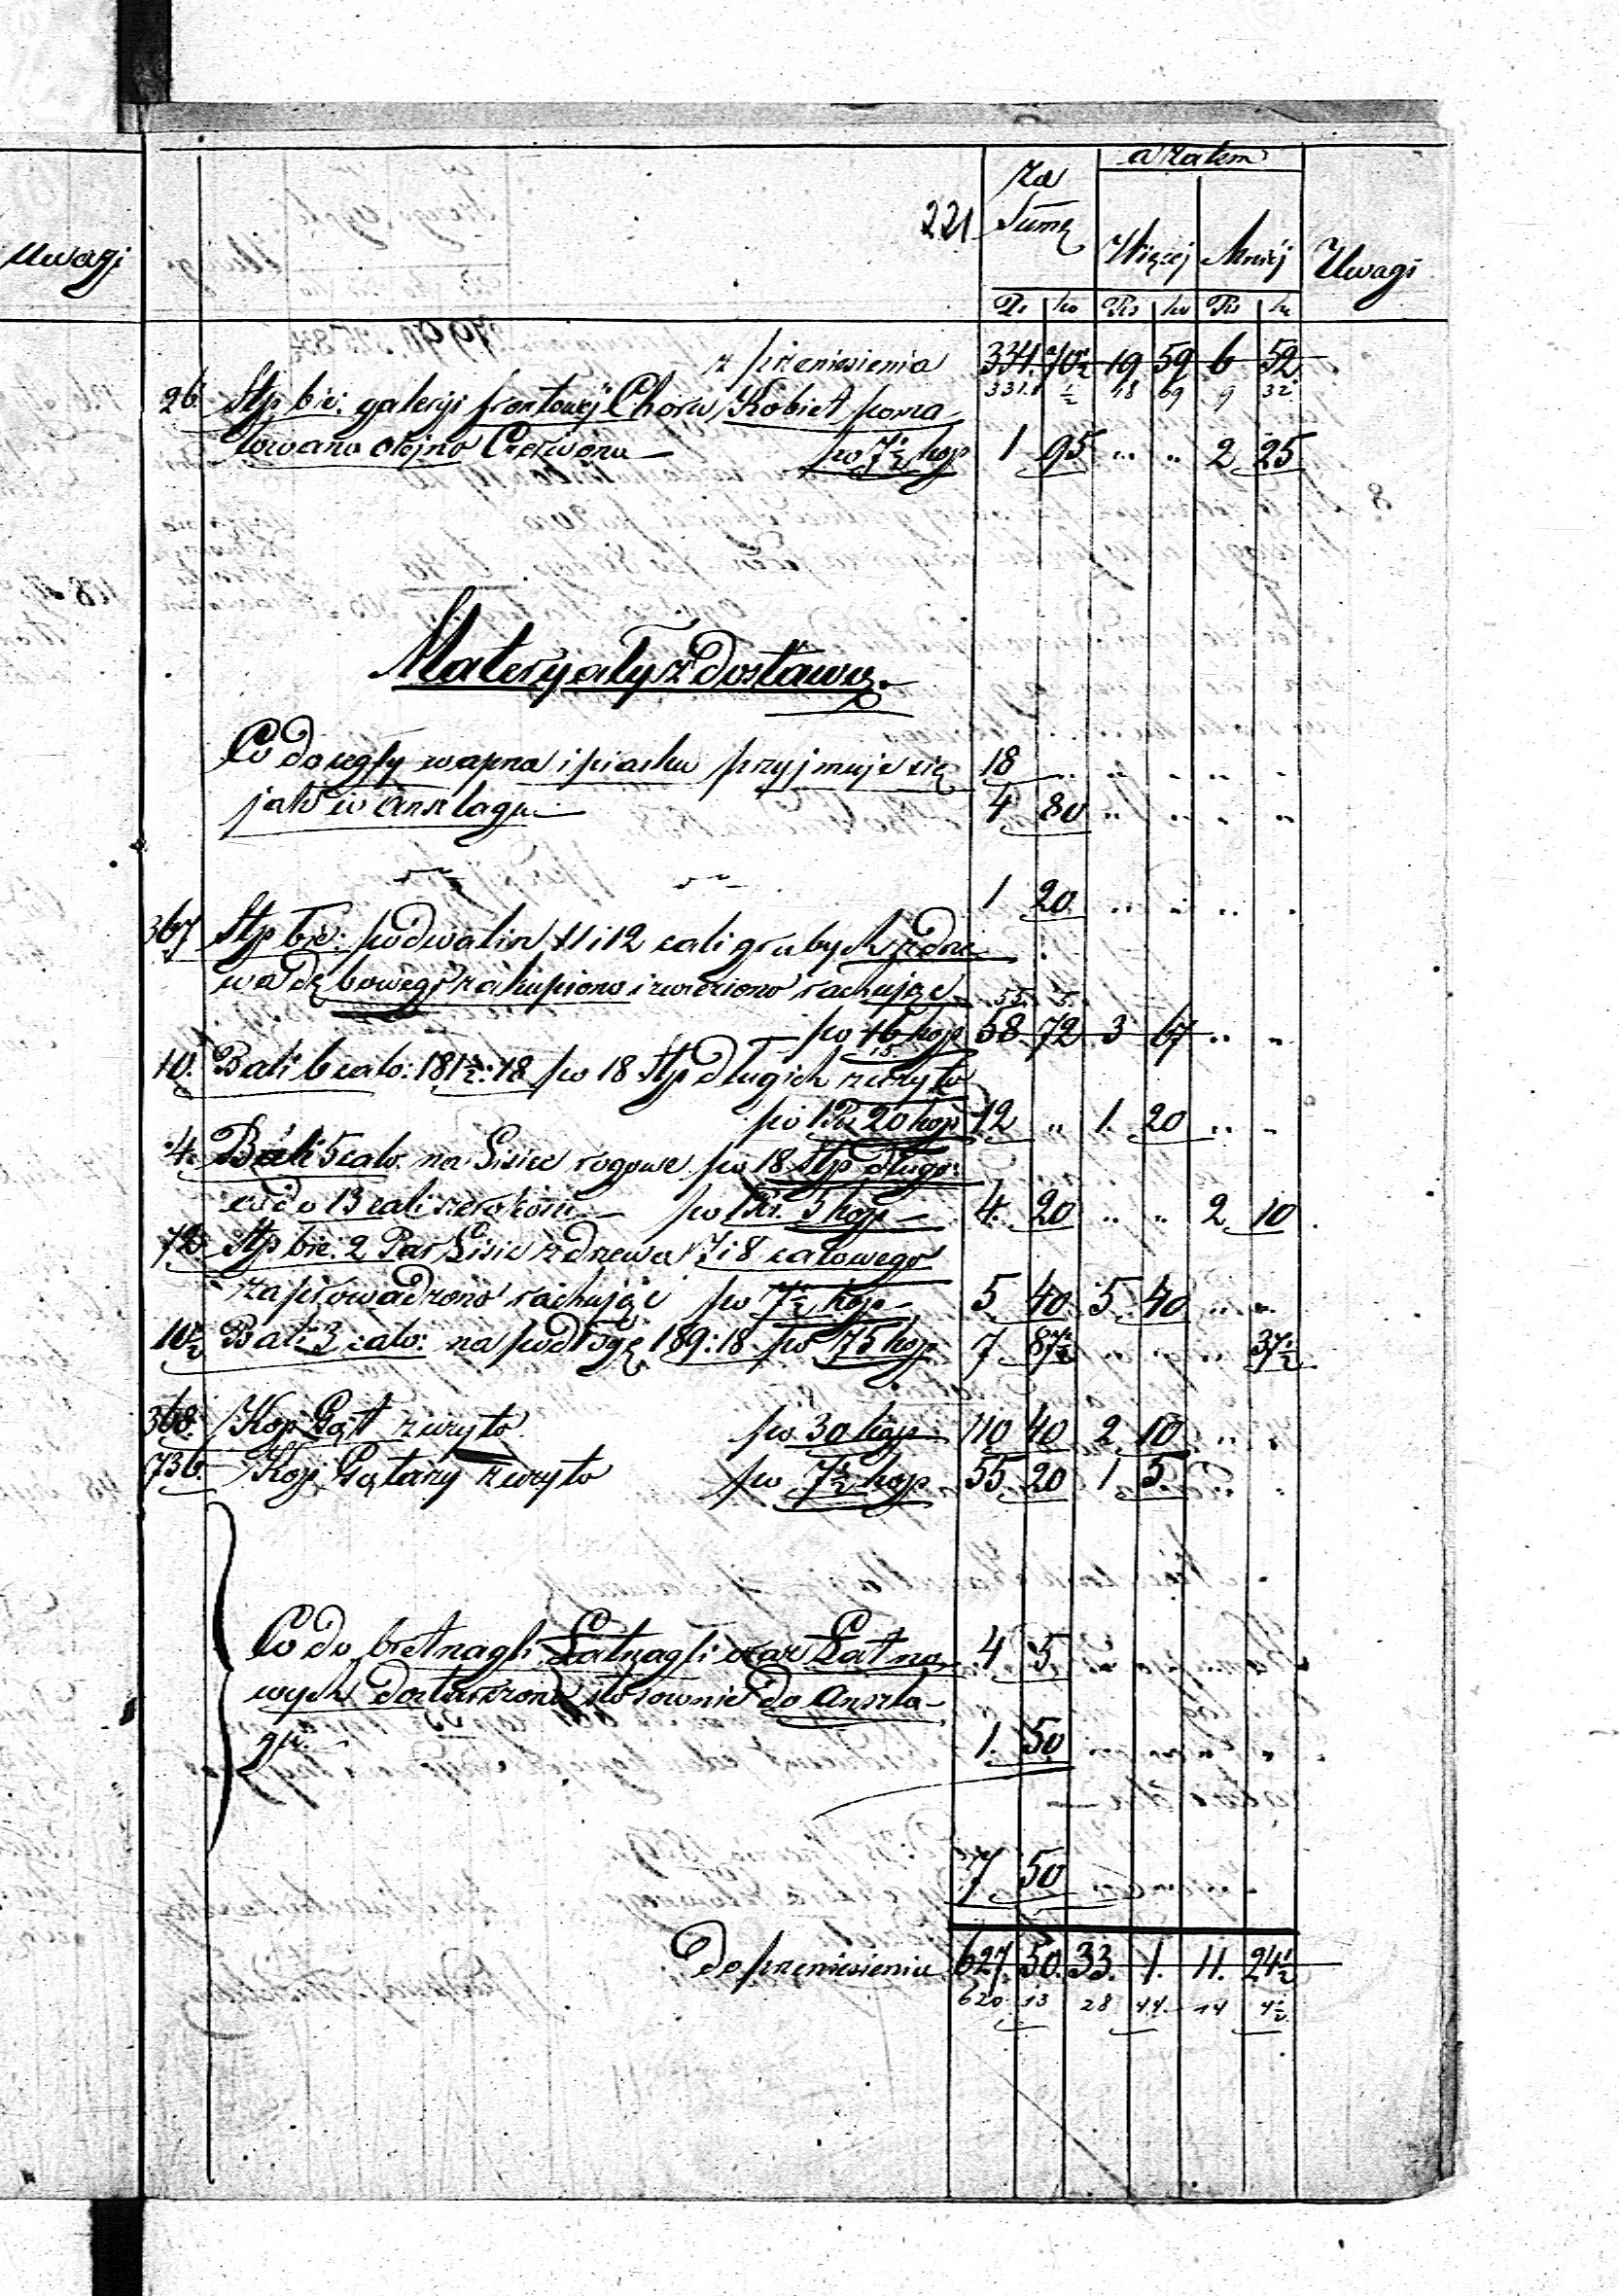 a zatem
za
221 Sumę
Uwagi Więcej Mniéj Uwagi
Rs ko Rs ko Rs k
z przeniesienia 334. 70½ 19 59 6 52
331. ½ 18 69 9 32
26 Stp bie: galeryi frontowéj Chóru Kobiet poma
lowano olejno Czerwono — po 7½ kop 1 95 " " 2 25
Materyały z Dostawą.
Co do cegły wapna i piasku przyjmuje się 18 " " " " "
jak w Anszlagu — 4 80 " " " "
1 20 " " " "
367 Stp bie: podwalin 11 i 12 cali grubych z drze
wa dębowego zakupiono i zwieziono rachując 55. 5
po 16 kop 58 72 3 67 " "
15
10. Bali 6 calo: 18 1½: 18 po 18 Stp długich zużyto
po 1 Rs 20 kop 12 " 1. 20 " "
4. Bali 5 calo. na Lisice rogowe po 18 Stp długo:
co do 13 cali szerokości — po 1 Rs. 5 kop — 4. 20 " " 2 10
72 Stp bie: 2 Par Lisic z drzewa 7 i 8 calowego
zaprowadzono rachując po 7½ kop — 5 40 5 40 " "
10½ Bali 3 calo: na podłogę 18 9: 18 po 75 kop 7 87½ " " " 37½
368. Kop Gąt zużyto po 30 kop 110 40 2 10 " "
736. Kop Gątary zużyto po 7½ kop 55 20 1 5
Co do bretnagli Łatnagli oraz Łat no 4 5
wych dostarczono stosownie do Anszla—
gu. 1. 50
7 50
Do przeniesienia 627. 50. 33. 1. 11. 24½
620 13 28 44. 14 4½